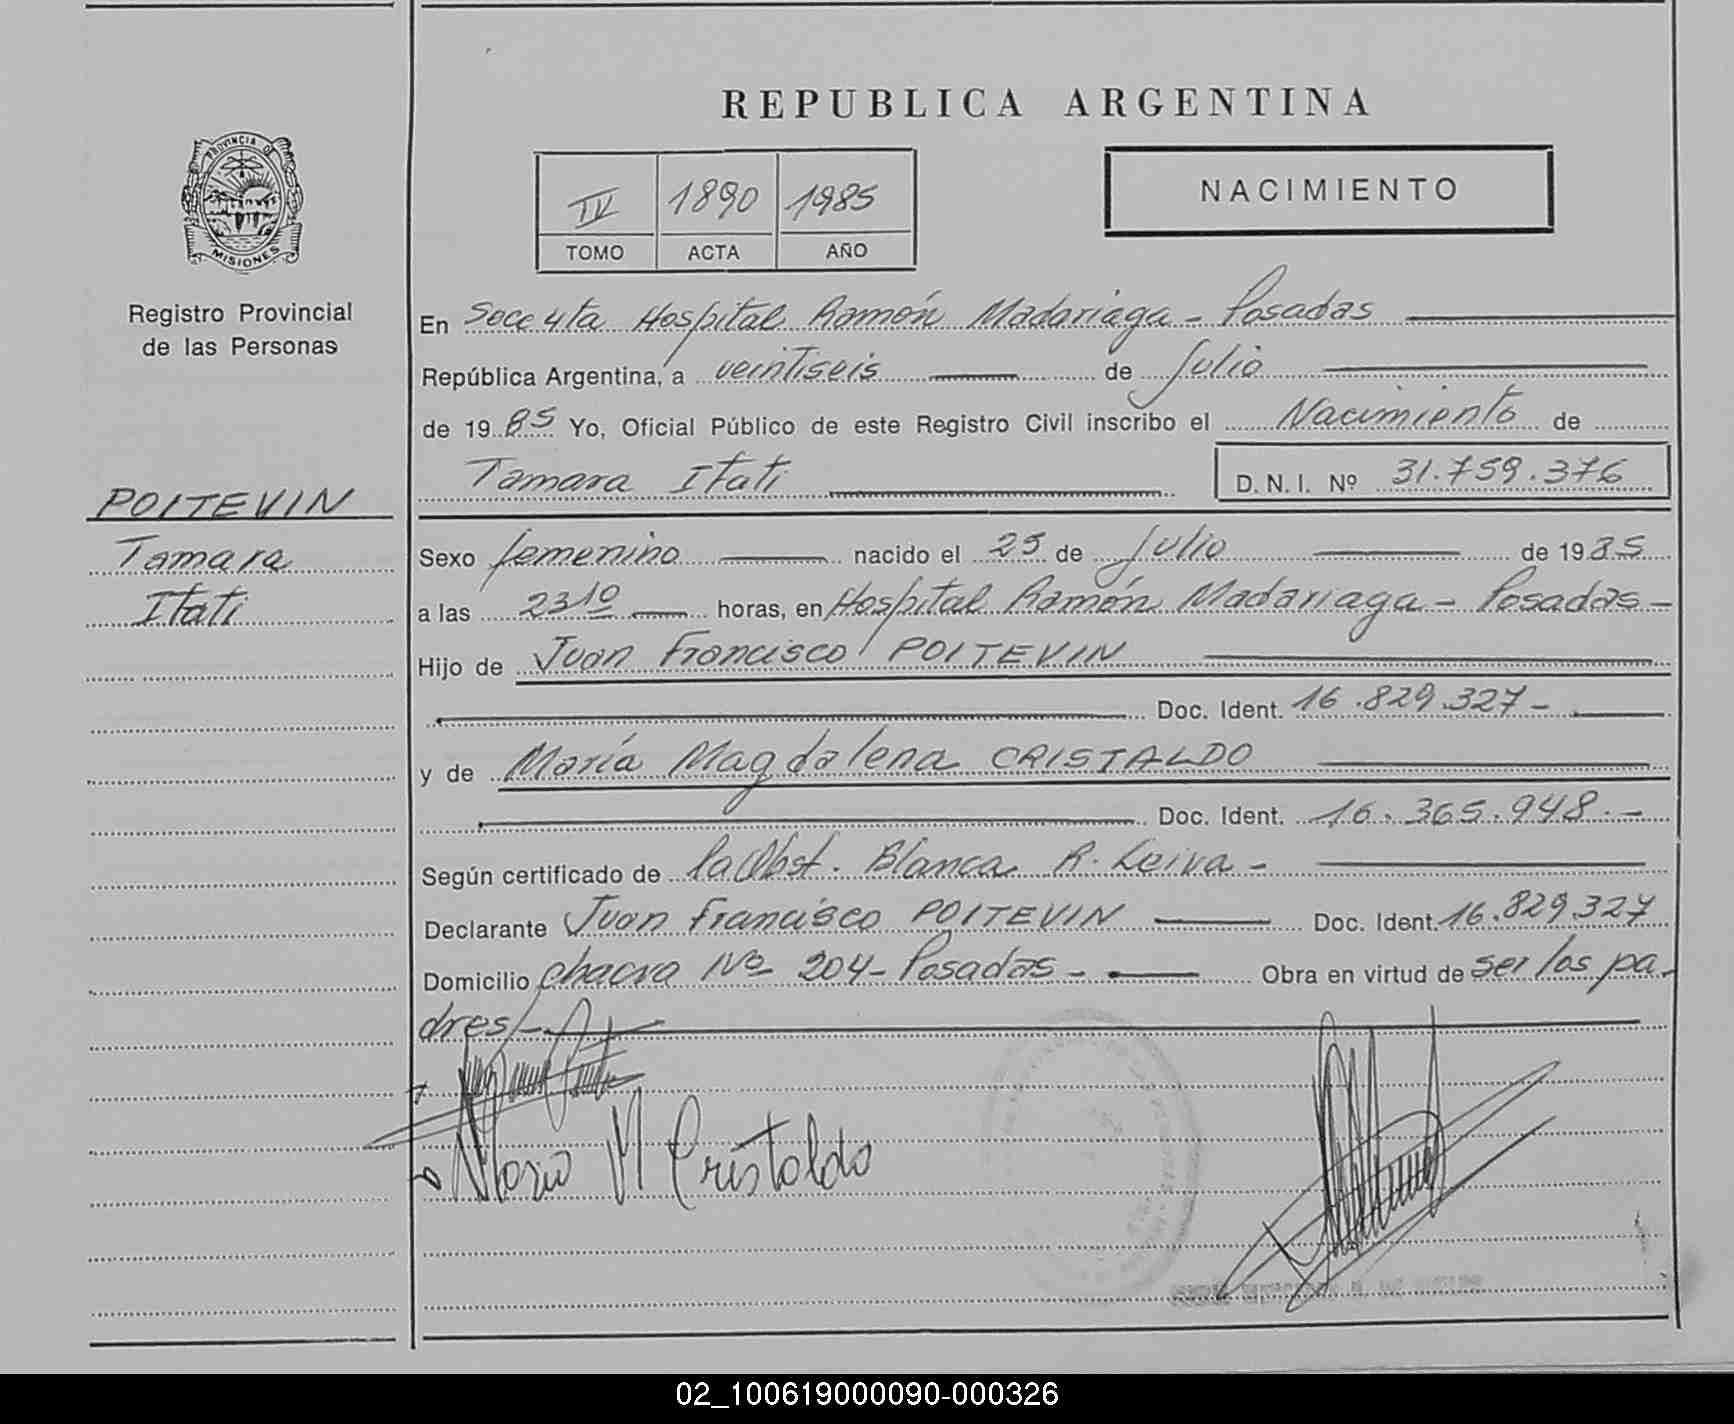 REPUBLICA ARGENTINA
PROVINCIA DE
MISIONES
Registro Provincial
de las Personas
IV 1890 1985
TOMO ACTA AÑO
NACIMIENTO
En Secc 4ta Hospital Ramón Madariaga - Posadas
República Argentina, a veintiseis de Julio
de 1985 Yo, Oficial Público de este Registro Civil inscribo el Nacimiento de
Tamara Itati D. N. I. Nº 31.759.376
POITEVIN
Tamara
Itati
Sexo femenino nacido el 25 de Julio de 1985
a las 23 10 horas, en Hospital Ramón Madariaga - Posadas -
Hijo de Juan Francisco POITEVIN
Doc. Ident. 16.829.327 -
y de María Magdalena CRISTALDO
Doc. Ident. 16.365.948.-
Según certificado de la Obst. Blanca R. Leiva -
Declarante Juan Francisco POITEVIN Doc. Ident. 16.829.327
Domicilio chacra Nº 204 - Posadas - Obra en virtud de ser los pa-
dres -
Maria M Cristaldo
02_100619000090-000326